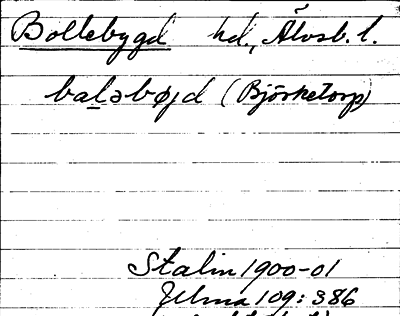 Bollebygd hd., Älvsb. l.
baləbøjd (Björketorp)
Stalin 1900-01
109: 386